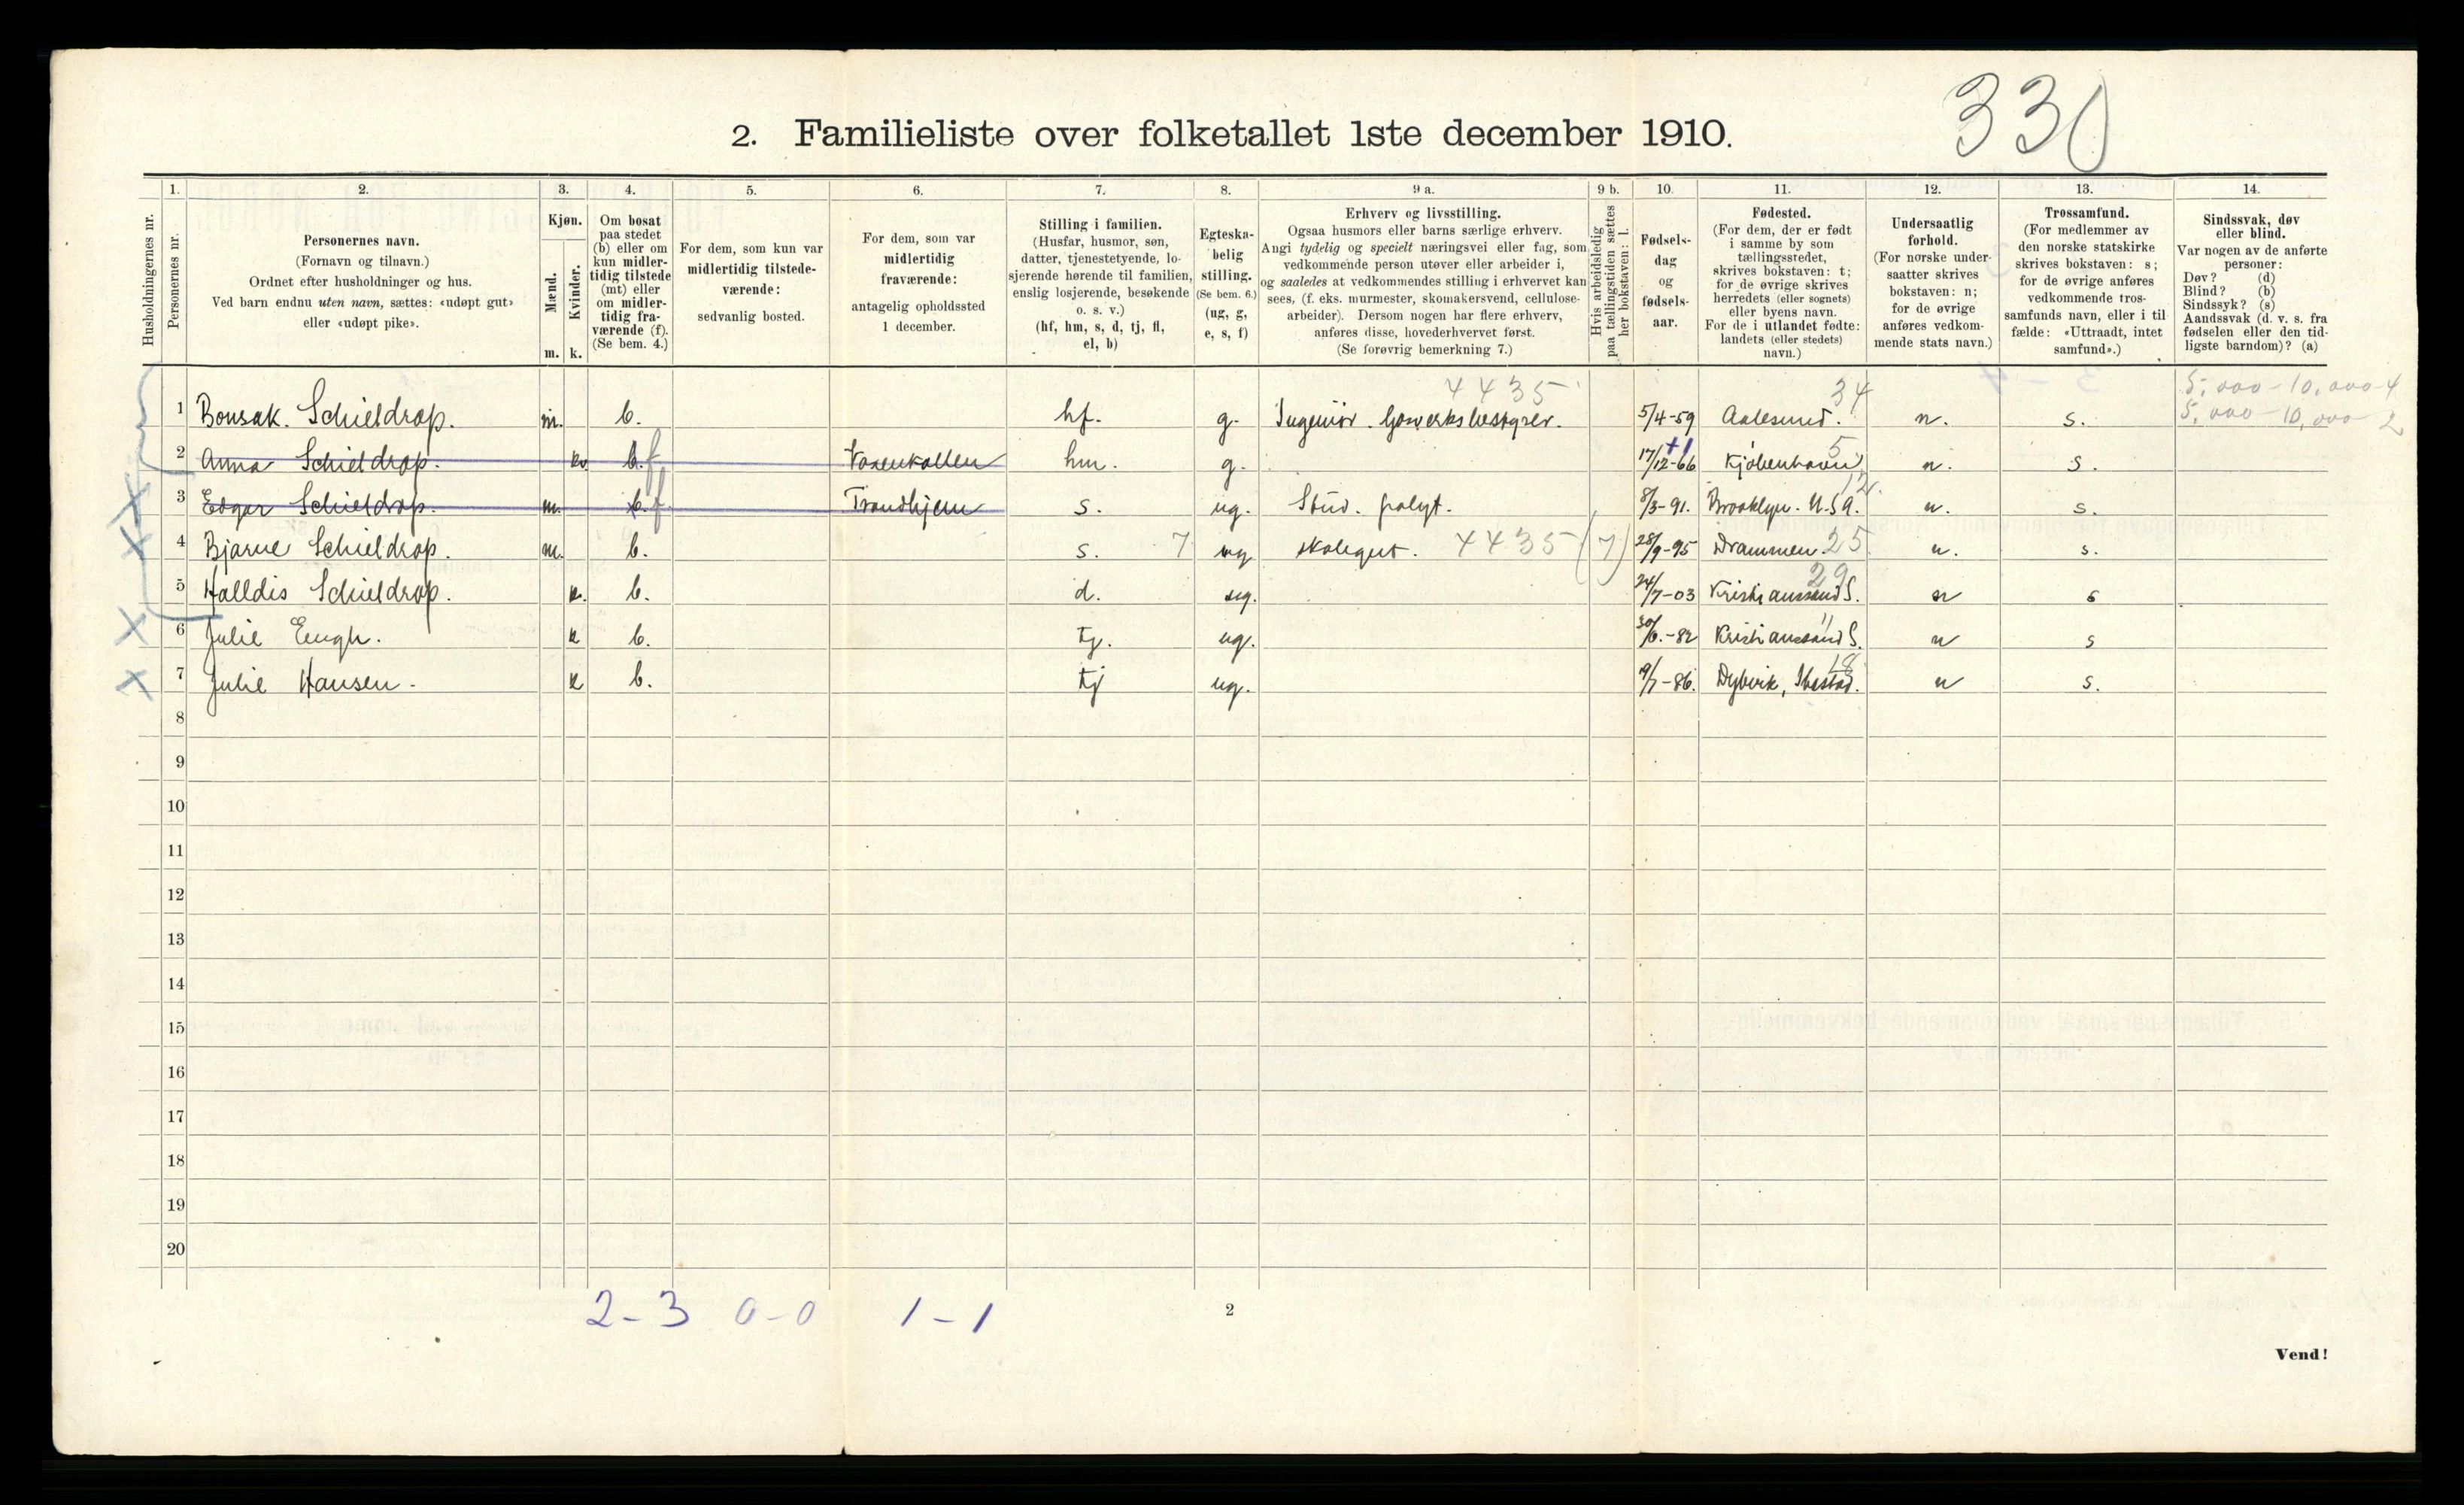 330
2. Familieliste over folketallet 1ste december 1910.
Husholdningernes nr.
1.
Personernes nr.
2.
Personernes navn.
(Fornavn og tilnavn.)
Ordnet efter husholdninger og hus.
Ved barn endnu uten navn, sættes: «udøpt gut»
eller «udøpt pike».
3.
Kjøn.
Mænd.
Kvinder.
m. k.
4.
Om bosat
paa stedet
(b) eller om
kun midler-
tidig tilstede
(mt) eller
om midler-
tidig fra-
værende (f).
(Se bem. 4.)
5.
For dem, som kun var
midlertidig tilstede-
værende:
sedvanlig bosted.
6.
For dem, som var
midlertidig
fraværende:
antagelig opholdssted
1 december.
7.
Stilling i familien.
(Husfar, husmor, søn,
datter, tjenestetyende, lo-
sjerende hørende til familien,
enslig losjerende, besøkende
o. s. v.)
(hf, hm, s, d, tj, fl,
el, b)
8.
Egteska-
belig
stilling.
(Se bem. 6.)
(ug, g,
e, s, f)
9 a.
Erhverv og livsstilling.
Ogsaa husmors eller barns særlige erhverv.
Angi tydelig og specielt næringsvei eller fag, som
vedkommende person utøver eller arbeider i,
og saaledes at vedkommendes stilling i erhvervet kan
sees, (f. eks. murmester, skomakersvend, cellulose-
arbeider). Dersom nogen har flere erhverv,
anføres disse, hovederhvervet først.
(Se forøvrig bemerkning 7.)
9 b.
Hvis arbeidsledig
paa tællingstiden sættes
her bokstaven: l.
10.
Fødsels-
dag
og
fødsels-
aar.
11.
Fødested.
(For dem, der er født
i samme by som
tællingsstedet,
skrives bokstaven: t;
for de øvrige skrives
herredets (eller sognets)
eller byens navn.
For de i utlandet fødte:
landets (eller stedets)
navn.)
12.
Undersaatlig
forhold.
(For norske under-
saatter skrives
bokstaven: n;
for de øvrige
anføres vedkom-
mende stats navn.)
13.
Trossamfund.
(For medlemmer av
den norske statskirke
skrives bokstaven: s;
for de øvrige anføres
vedkommende tros-
samfunds navn, eller i til-
fælde: «Uttraadt, intet
samfund».)
14.
Sindssvak, døv
eller blind.
Var nogen av de anførte
personer:
Døv? (d)
Blind? (b)
Sindssyk? (s)
Aandssvak (d. v. s. fra
fødselen eller den tid-
ligste barndom)? (a)
4435 34 5,000-10,000-4
1 Bonsak. Schieldrop. m. b. hf. g. Ingeniör. Gasverksbestyrer. 5/4-59 Aalesund. n. s. 5,000-10,000 2
+1 5
2 Anna Schieldrop. k. b. f Voxenkollen hm. g. 17/12-66 Kjöbenhavn n. s.
12.
3 Edgar Schieldrop. m. b. f Trondhjem s. ug. Stud. polyt. 8/3-91. Brooklyn. U.S.A. n. s.
4 Bjarne Schieldrop. m. b. s. 7 ug skolegut. 4435 (7) 28/9-95 Drammen. 25 n. s.
29
5 Halldis Schieldrop. k. b. d. ug. 24/7-03 Kristianssand S. n s
11
6 Julie Eugh. k b. tj. ug. 30/6.-82 Kristianssand S. n s
18
7 Julie Hansen. k b. tj ug. 19/7-86. Dybvik, Ibestad. n s.
8
9
10
11
12
13
14
15
16
17
18
19
20
2-3 0-0 1-1
2
Vend!